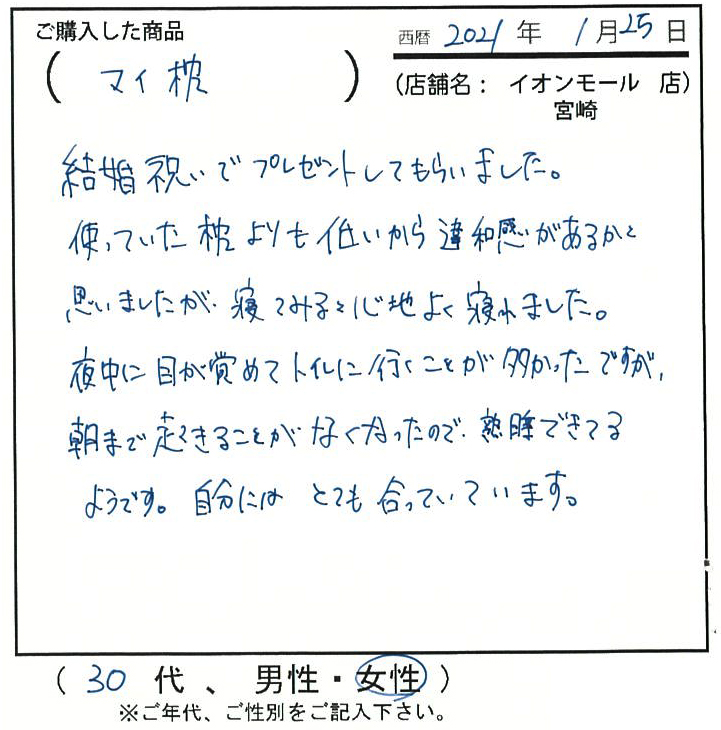 ご購入した商品
西暦 2021 年 1月25日
( マイ枕 )
(店舗名： イオンモール 店)
宮崎
結婚祝いでプレゼントしてもらいました。
使っていた枕よりも低いから違和感があるかと
思いましたが、寝てみると心地よく寝れました。
夜中に目が覚めてトイレに行くことが多かったですが、
朝まで起きることがなくなったので、熟睡できてる
ようです。自分にはとても合っていています。
( 30 代 、 男性・女性 )
※ご年代、ご性別をご記入下さい。